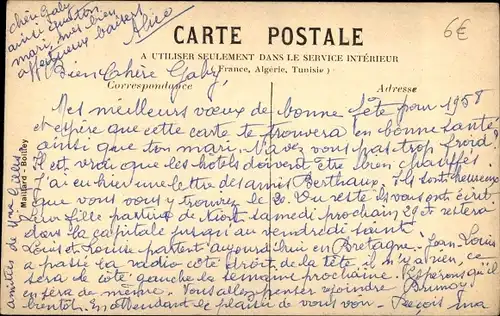 6€
CARTE POSTALE
A UTILISER SEULEMENT DANS LE SERVICE INTÉRIEUR
(France, Algérie, Tunisie)
Correspondance
Adresse
Bien chère Gaby,
Mes meilleurs vœux de bonne fête pour 1958
et espère que cette carte te trouvera en bonne santé
ainsi que ton mari. N'avez vous pas trop froid?
Il est vrai que les hôtels doivent être bien chauffés
J'ai eu hier une lettre des amis Berthaux. Ils sont heureux
que vous vous y trouviez le 20. Du reste ils vous ont écrit.
partira de Niort samedi prochain 29 et restera
dans la capitale jusqu'au vendredi saint
Louis et Louise partent aujourd'hui en Bretagne. Jean-Louis
a passé la radio côté droit de la tête, il n'y a rien, ce
sera le côté gauche la semaine prochaine. Espérons qu'il
en sera de même. Vous allez penser rejoindre Brunoy
bientôt. En attendant le plaisir de vous voir. Reçois ma
chère Gaby
ainsi que ton
mari, mes bien
affectueux baisers
Alice
amitiés de Mme Gilles
Maillard - Bouley